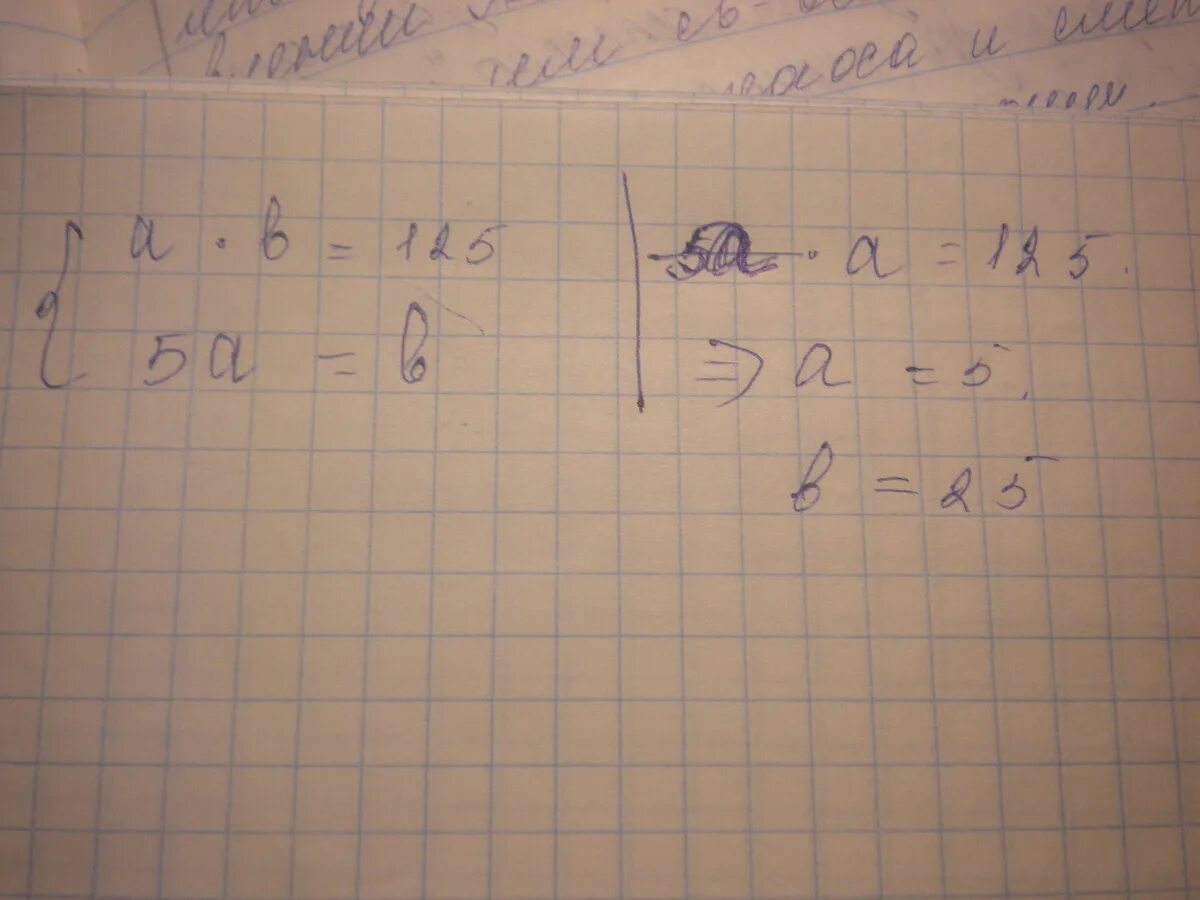 тем
и
a · b = 125
5a = b
5a · a = 125.
⇒ a = 5.
b = 25